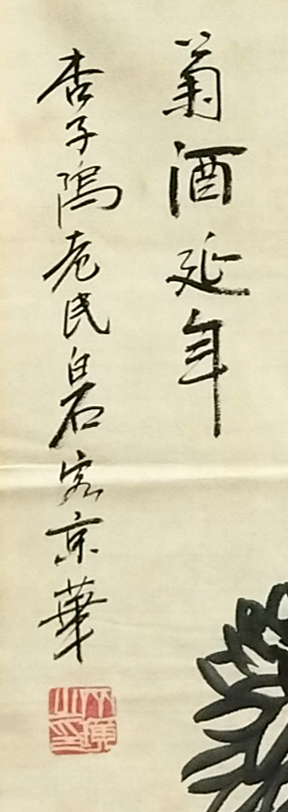 菊酒延年
杏子隖老民白石客京華